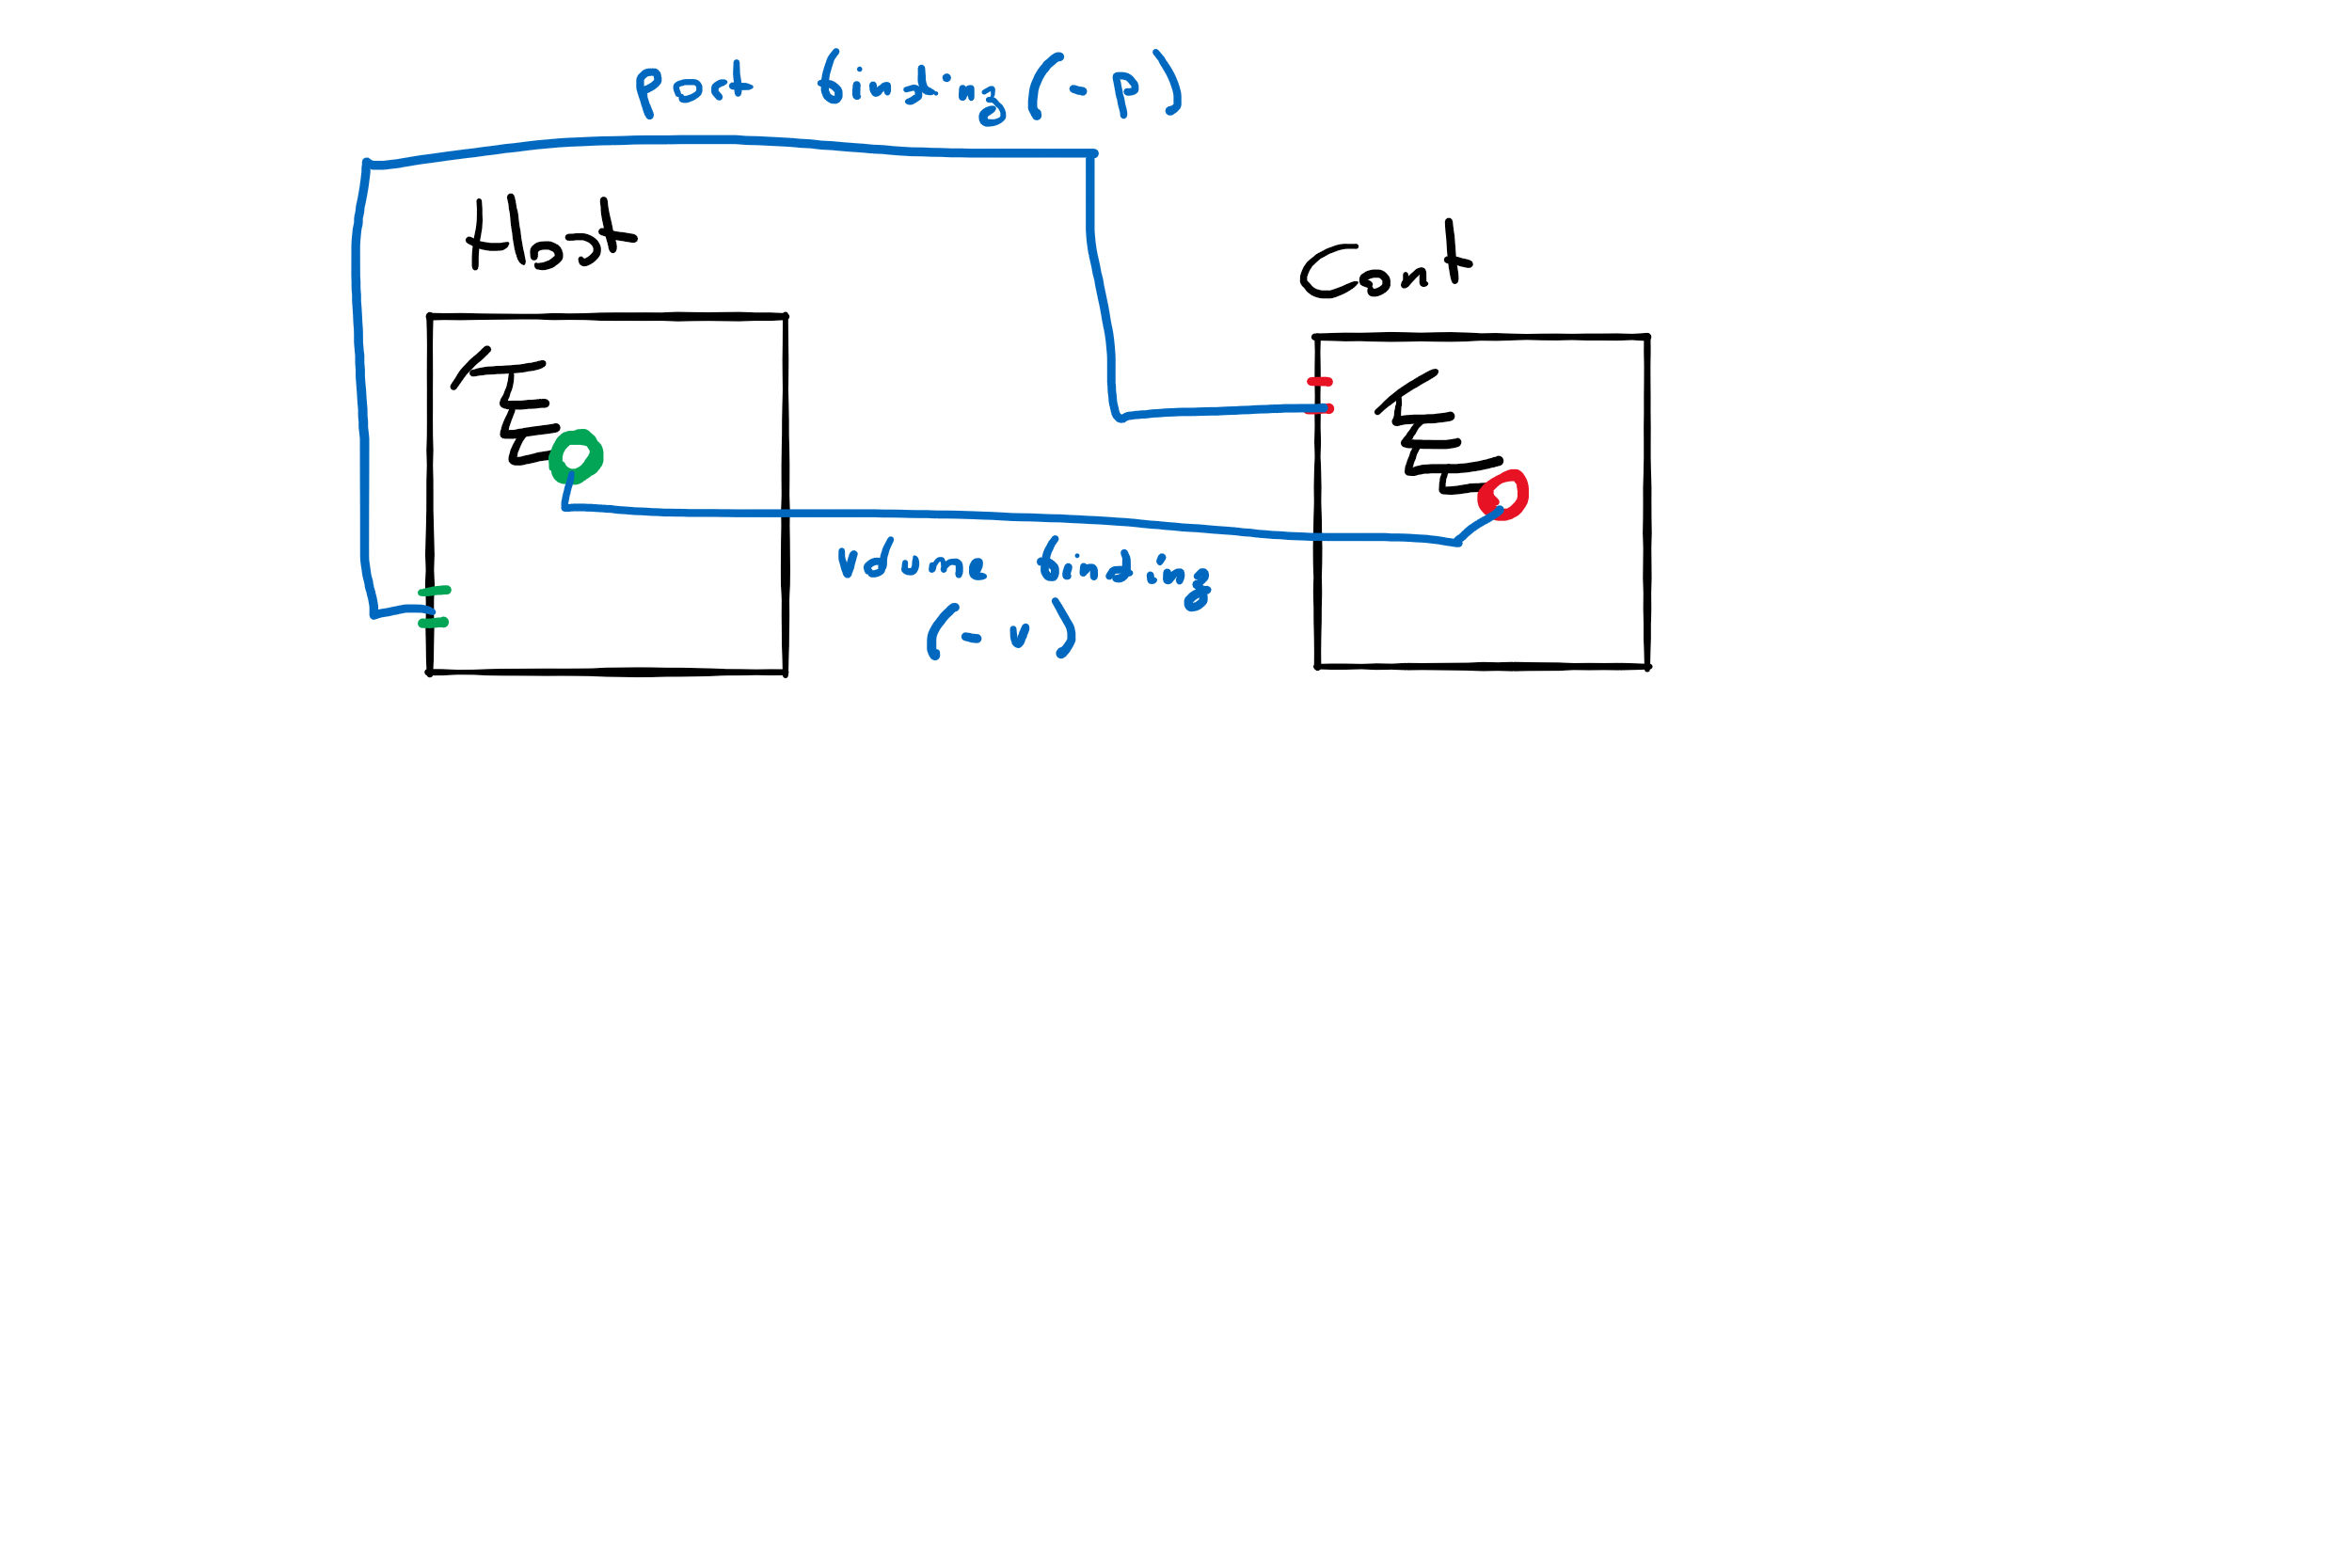 port binding (-p)
Host
Cont
/
/
volume binding
(-v)